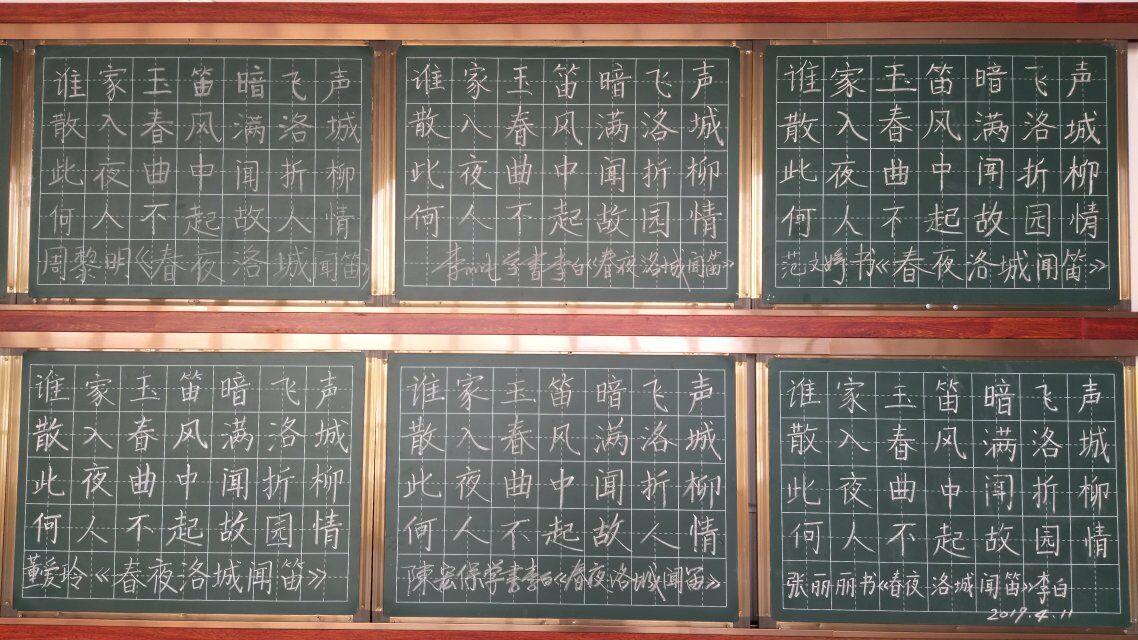 谁家玉笛暗飞声
散入春风满洛城
此夜曲中闻折柳
何人不起故人情
周黎明《春夜洛城闻笛》
谁家玉笛暗飞声
散入春风满洛城
此夜曲中闻折柳
何人不起故园情
李 学书李白《春夜洛城闻笛》
谁家玉笛暗飞声
散入春风满洛城
此夜曲中闻折柳
何人不起故园情
范文峥书《春夜洛城闻笛》
谁家玉笛暗飞声
散入春风满洛城
此夜曲中闻折柳
何人不起故园情
董爱玲《春夜洛城闻笛》
谁家玉笛暗飞声
散入春风满洛城
此夜曲中闻折柳
何人不起故人情
陳宏保学书李白《春夜洛城闻笛》
谁家玉笛暗飞声
散入春风满洛城
此夜曲中闻折柳
何人不起故园情
张丽丽书《春夜洛城闻笛》李白
2019.4.11